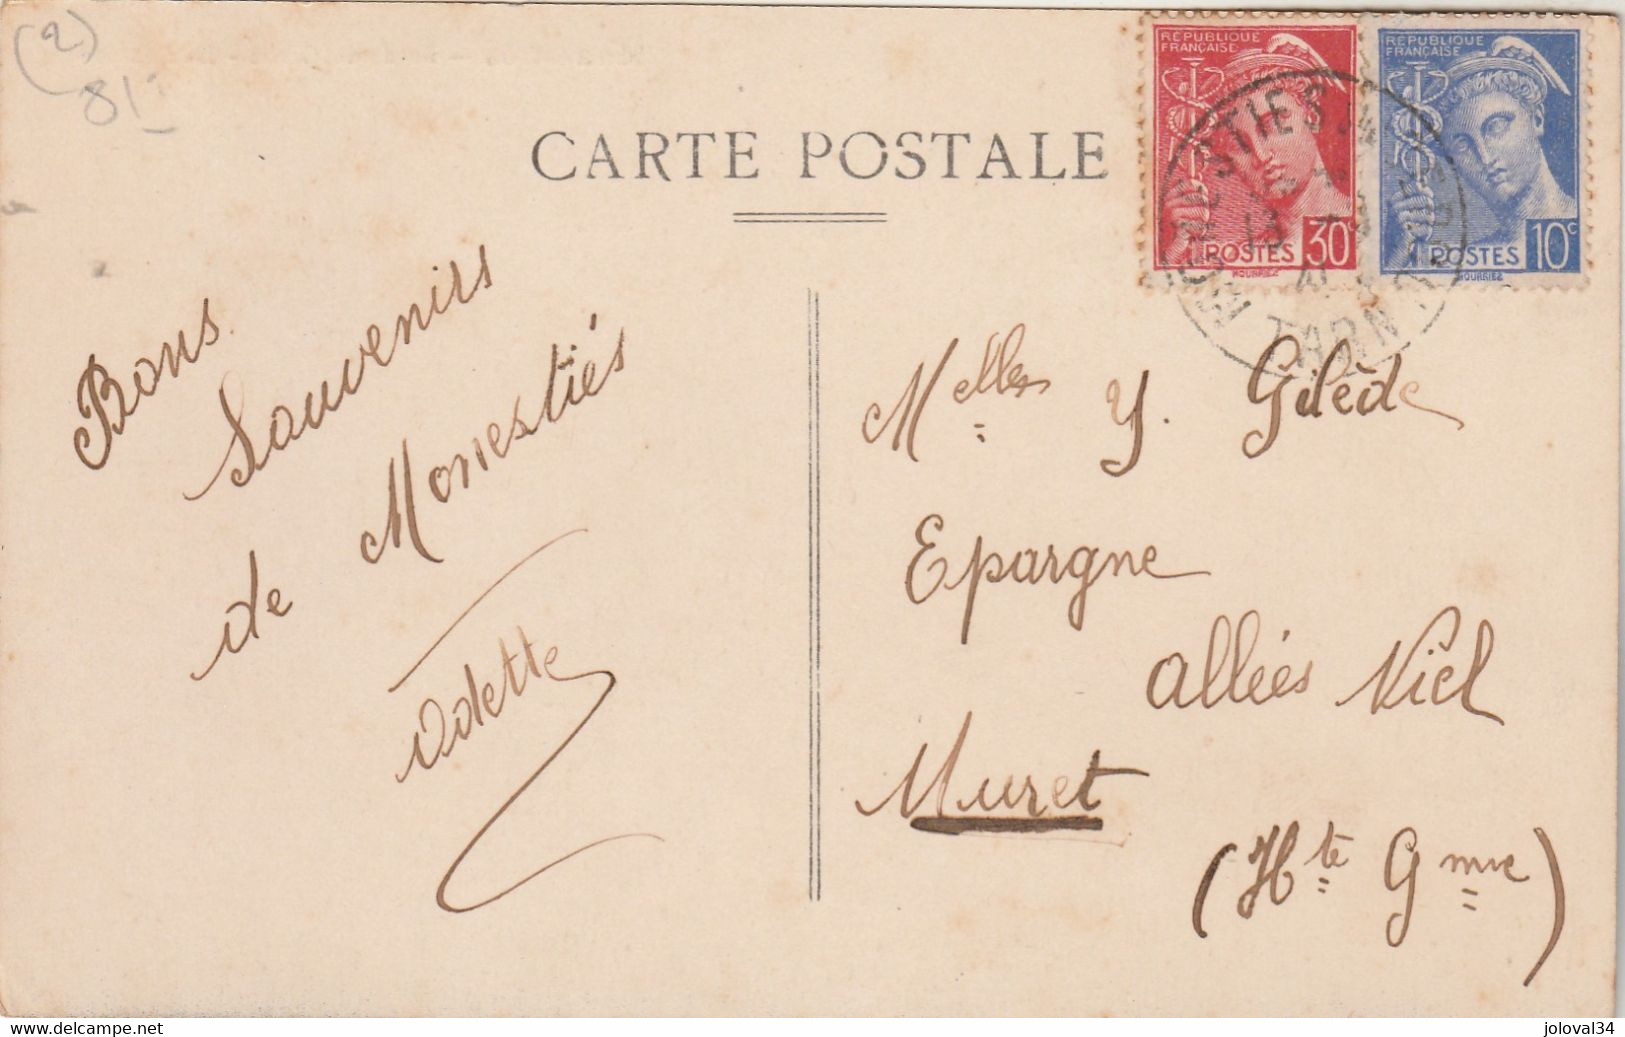 (2)
81
CARTE POSTALE
REPUBLIQUE
FRANÇAISE
POSTES 30c
MOURRIEZ
REPUBLIQUE
FRANÇAISE
POSTES 10c
MOURRIEZ
MONESTIES
13
TARN
Bons
Souvenirs
de Monestiés
Odette
Melles Y. Gilède
Epargne
allées Niel
Muret
(Hte Gnne)
www.delcampe.net
joloval34